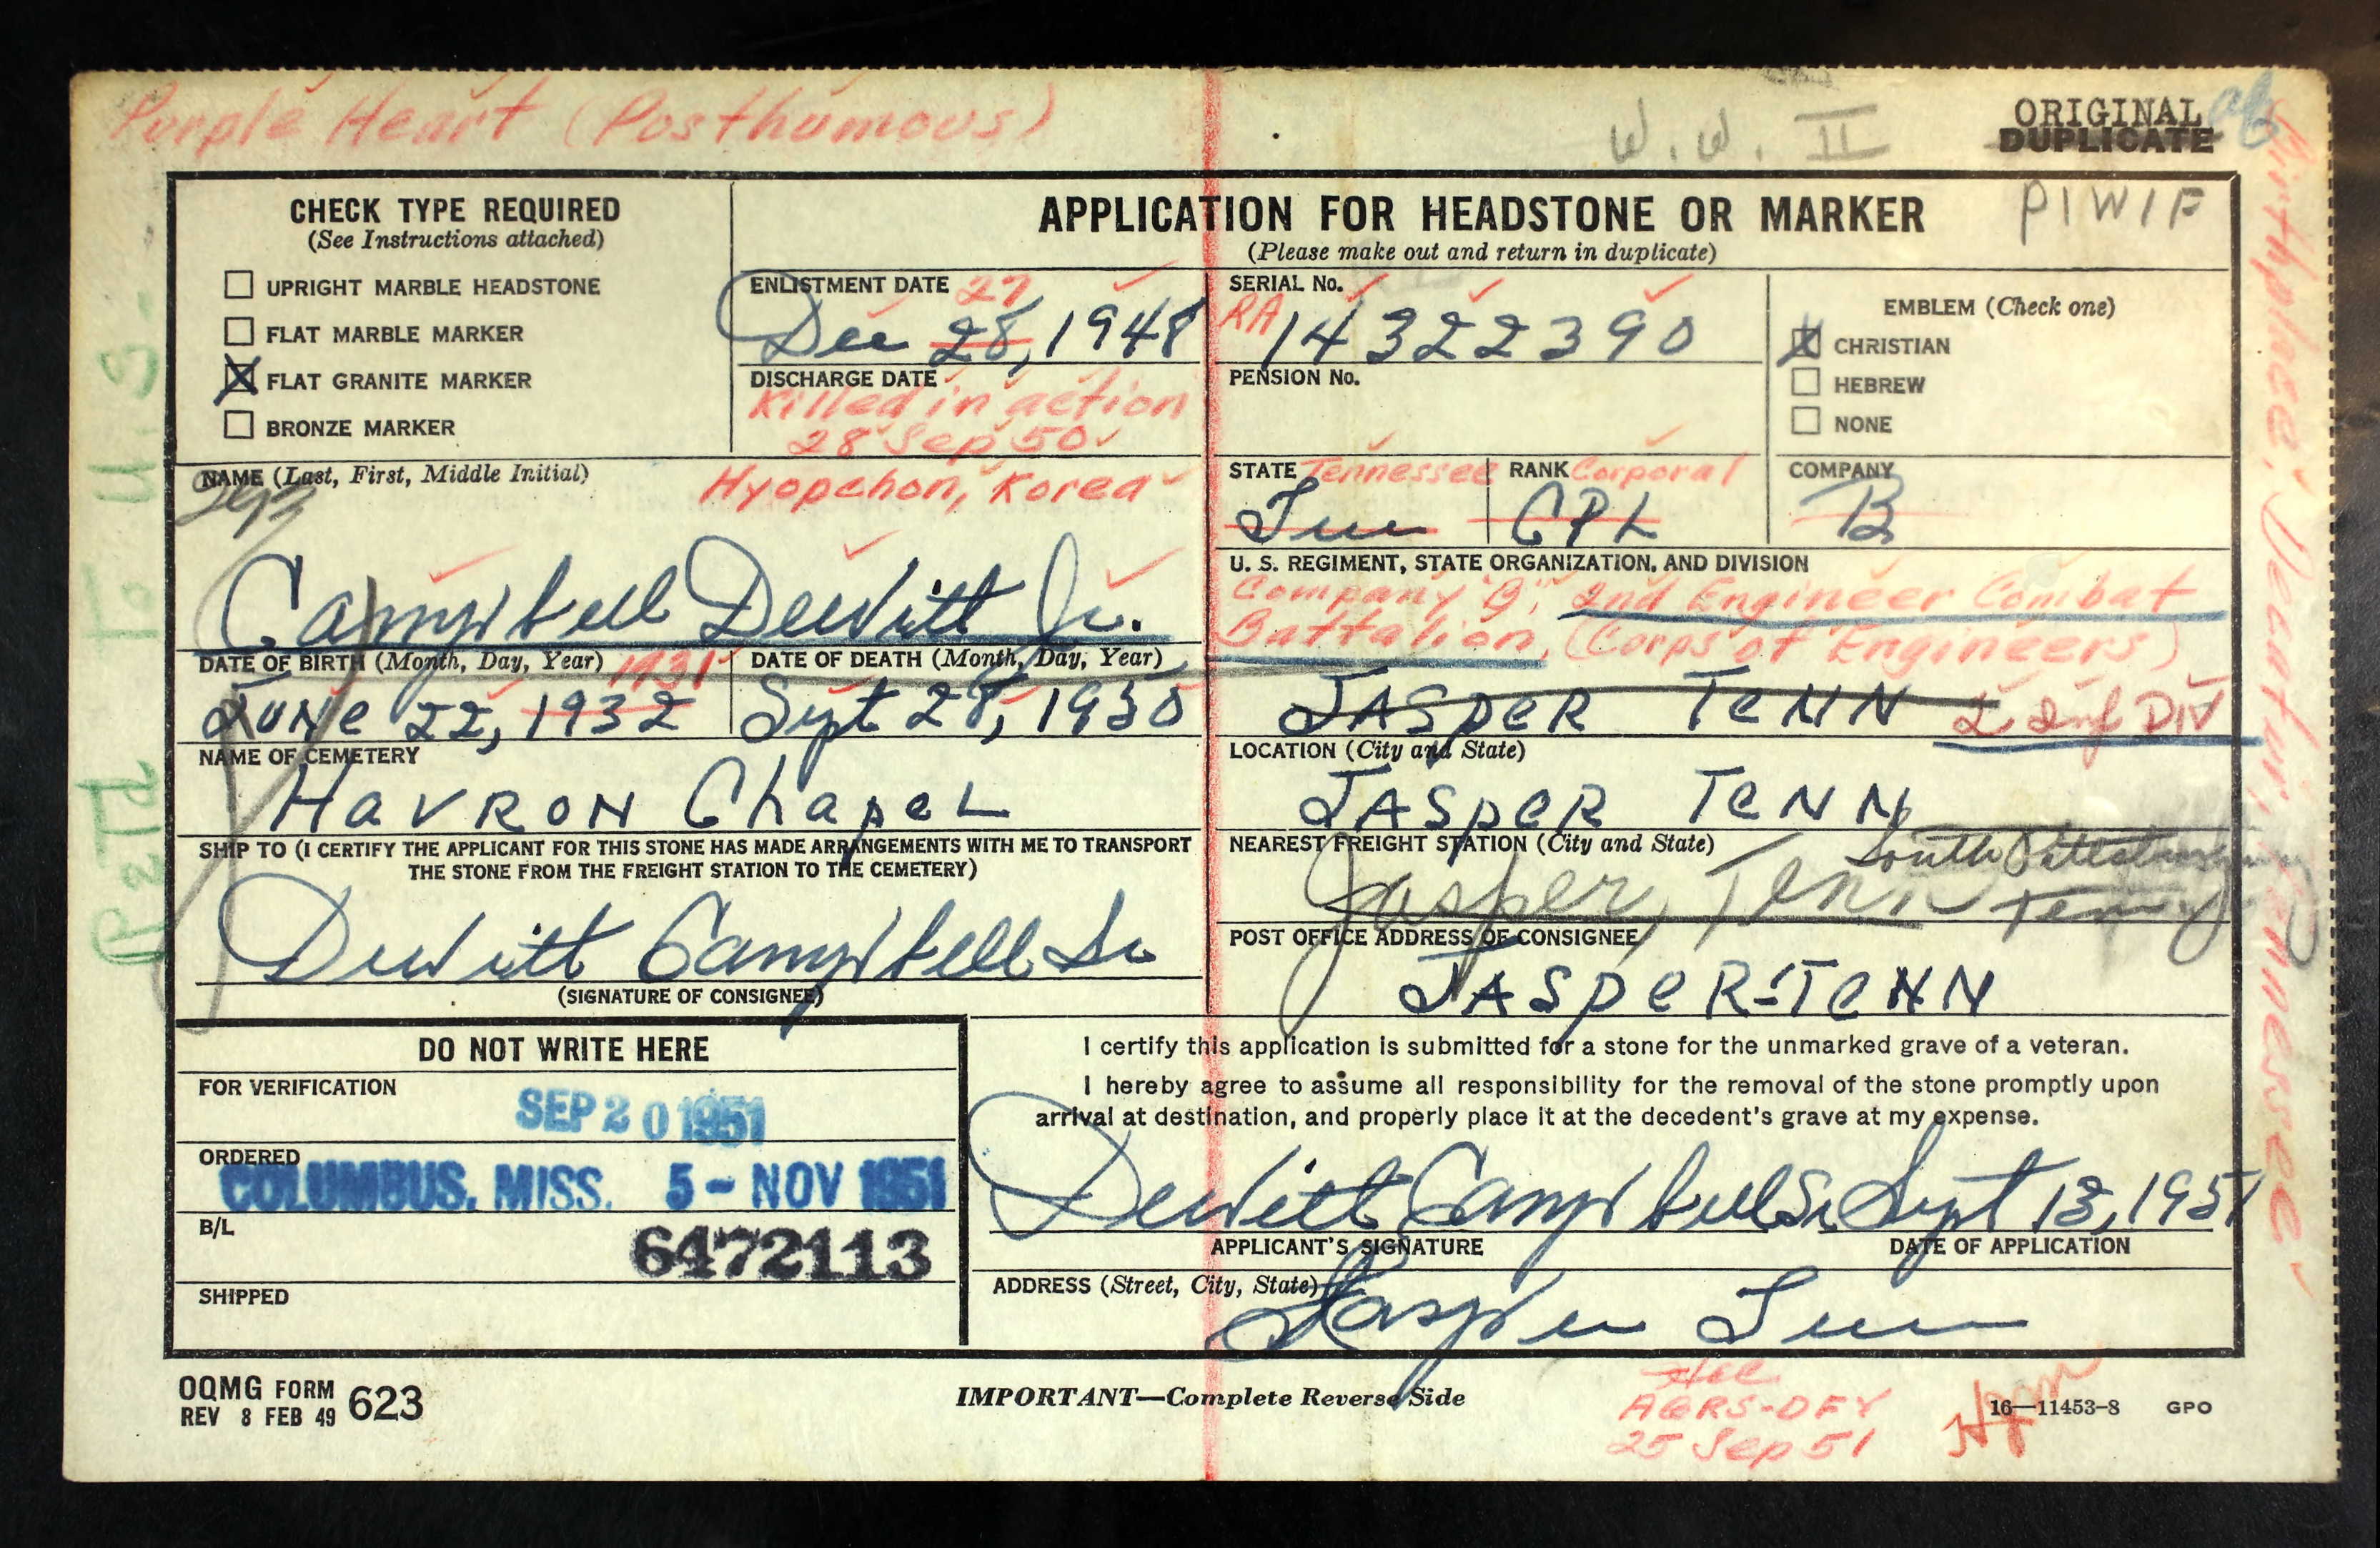 Purple Heart (Posthumous)
W. W. II
ORIGINAL
DUPLICATE
PIWIF
CHECK TYPE REQUIRED
(See Instructions attached)
UPRIGHT MARBLE HEADSTONE
FLAT MARBLE MARKER
FLAT GRANITE MARKER
BRONZE MARKER
APPLICATION FOR HEADSTONE OR MARKER
(Please make out and return in duplicate)
ENLISTMENT DATE 27
Dec 28, 1948
DISCHARGE DATE
Killed in action
28 Sep 50
Hyopchon, Korea
SERIAL No.
RA 14322390
PENSION No.
EMBLEM (Check one)
CHRISTIAN
HEBREW
NONE
NAME (Last, First, Middle Initial)
Campbell DeWitt Jr.
STATE Tennessee
Tenn
RANK Corporal
CPL
COMPANY
B
U. S. REGIMENT, STATE ORGANIZATION, AND DIVISION
Company "B", 2nd Engineer Combat
Battalion, (Corps of Engineers)
JASPER TENN 2 Inf DIV
DATE OF BIRTH (Month, Day, Year) 1931
JUNe 22, 1932
DATE OF DEATH (Month, Day, Year)
Sept 28, 1950
NAME OF CEMETERY
HavRON ChapeL
LOCATION (City and State)
JASpeR TeNN
SHIP TO (I CERTIFY THE APPLICANT FOR THIS STONE HAS MADE ARRANGEMENTS WITH ME TO TRANSPORT
THE STONE FROM THE FREIGHT STATION TO THE CEMETERY)
DeWitt Campbell Sr
(SIGNATURE OF CONSIGNEE)
NEAREST FREIGHT STATION (City and State)
South Pittsburg
Jasper, Tenn Tenn
POST OFFICE ADDRESS OF CONSIGNEE
JASpeR-TeNN
DO NOT WRITE HERE
FOR VERIFICATION
SEP 20 1951
ORDERED
COLUMBUS, MISS. 5 - NOV 1951
B/L
6472113
SHIPPED
I certify this application is submitted for a stone for the unmarked grave of a veteran.
I hereby agree to assume all responsibility for the removal of the stone promptly upon
arrival at destination, and properly place it at the decedent's grave at my expense.
DeWitt Campbell Sr Sept 13, 1951
APPLICANT'S SIGNATURE DATE OF APPLICATION
ADDRESS (Street, City, State)
Jasper Tenn
OQMG FORM 623
REV 8 FEB 49
IMPORTANT—Complete Reverse Side
AGRS-DFY
25 Sep 51
16—11453-8 GPO
Retd To U.S.
Birthplace: Decatur, Tennessee